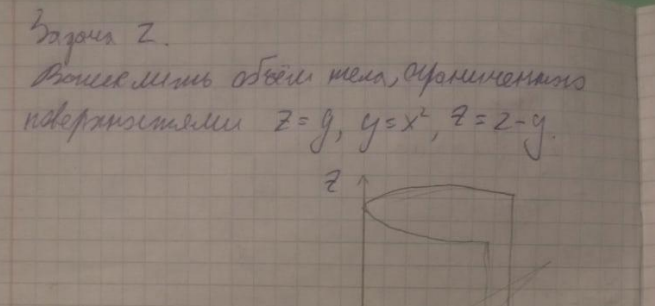 Задача 2.
Вычислить объём тела, ограниченного
поверхностями z=y, y=x², z=2-y.
z